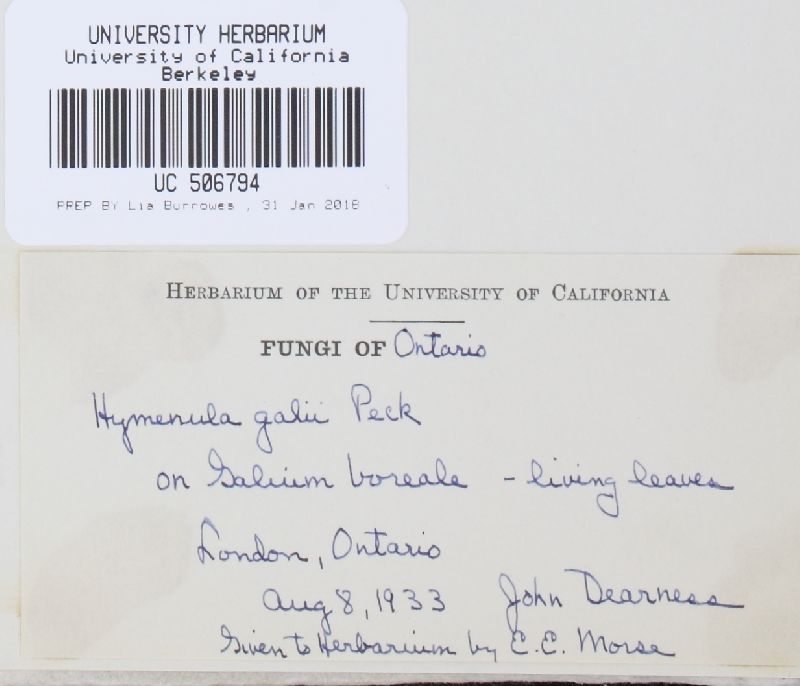 UNIVERSITY HERBARIUM
University of California
Berkeley
UC 506794
PREP BY Lia Burrowes , 31 Jan 2018
HERBARIUM OF THE UNIVERSITY OF CALIFORNIA
FUNGI OF Ontario
Hymenula galii Peck
on Galium boreale - living leaves
London, Ontario
Aug 8, 1933 John Dearness
Given to Herbarium by E.E. Morse